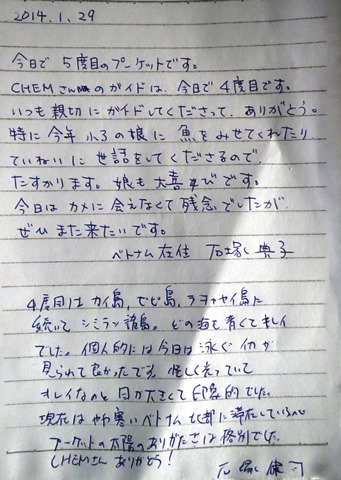 2014.1.29
今日で5度目のプーケットです。
CHEMさんのガイドは、今日で4度目です。
いつも親切にガイドしてくださって、ありがとう。
特に今年小3の娘に魚をみせてくれたり
ていねいに世話をしてくださるので、
たすかります。娘も大喜びです。
今日はカメに会えなくて残念でしたが
ぜひまた来たいです。
ベトナム在住 石塚 典子
4度目はカイ島、ピピ島、ラチャヤイ島に
続いてシミラン諸島。どの海も青くてキレイ
でした。個人的には今日は泳ぐイカが
見られて良かったです。怪しく光っていて
キレイなのと目が大きくて印象的でした。
現在はやや寒いベトナム北部に滞在しているので
プーケットの太陽のありがたさは格別でした。
CHEMさんありがとう!
石塚